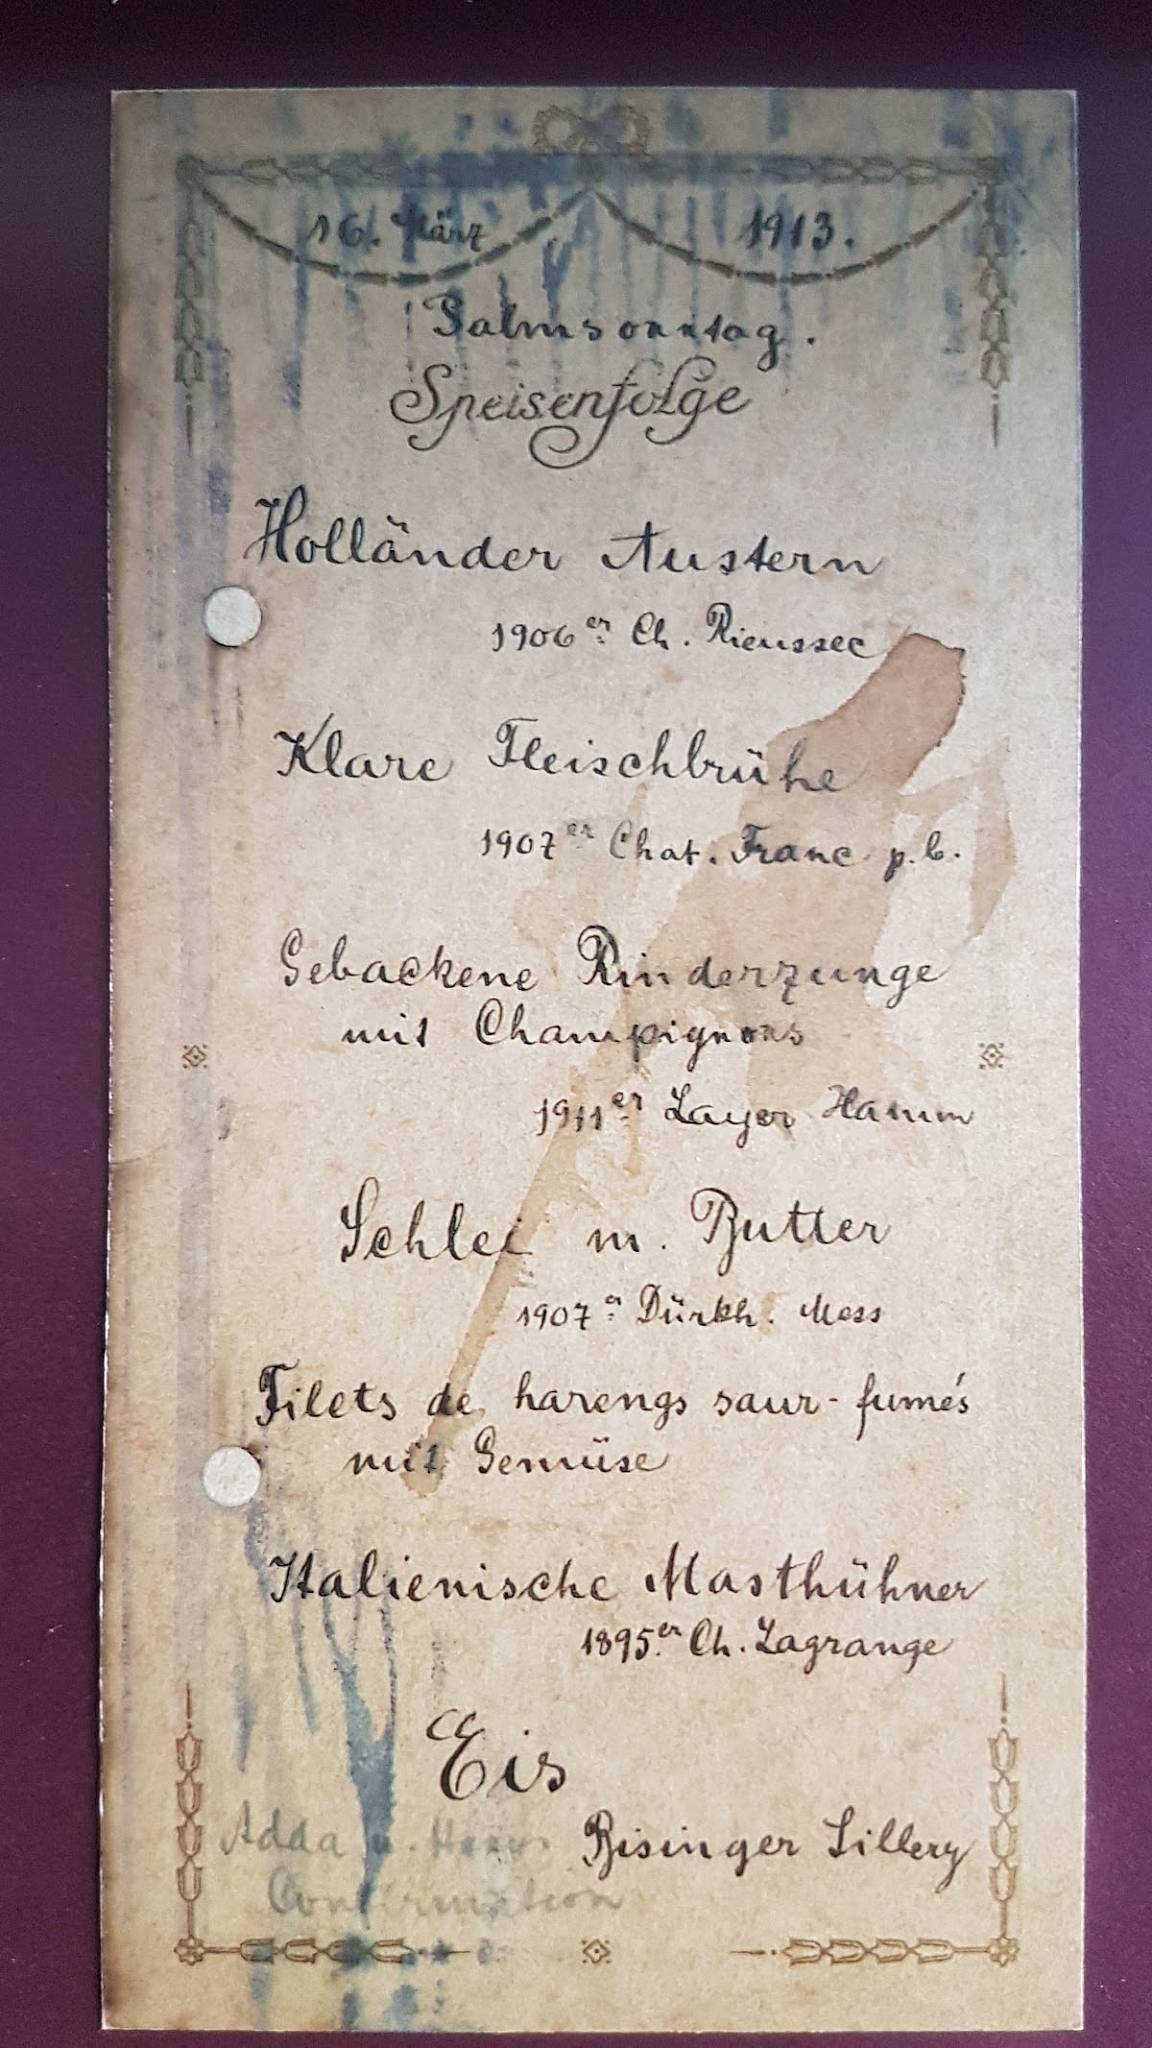 16. März 1913.
Palmsonntag.
Speisenfolge
Holländer Austern
1906er Ch. Rieussec
Klare Fleischbrühe
1907er Chat. Franc p. b.
Gebackene Rinderzunge
mit Champignons
1911er Layer Hamm
Schlei m. Butter
1907er Dürkh.
Filets de harengs saur-fumés
mit Gemüse
Italienische Masthühner
1895er Ch. Lagrange
Eis
Bisinger Sillery
Adda u.
Confirmation